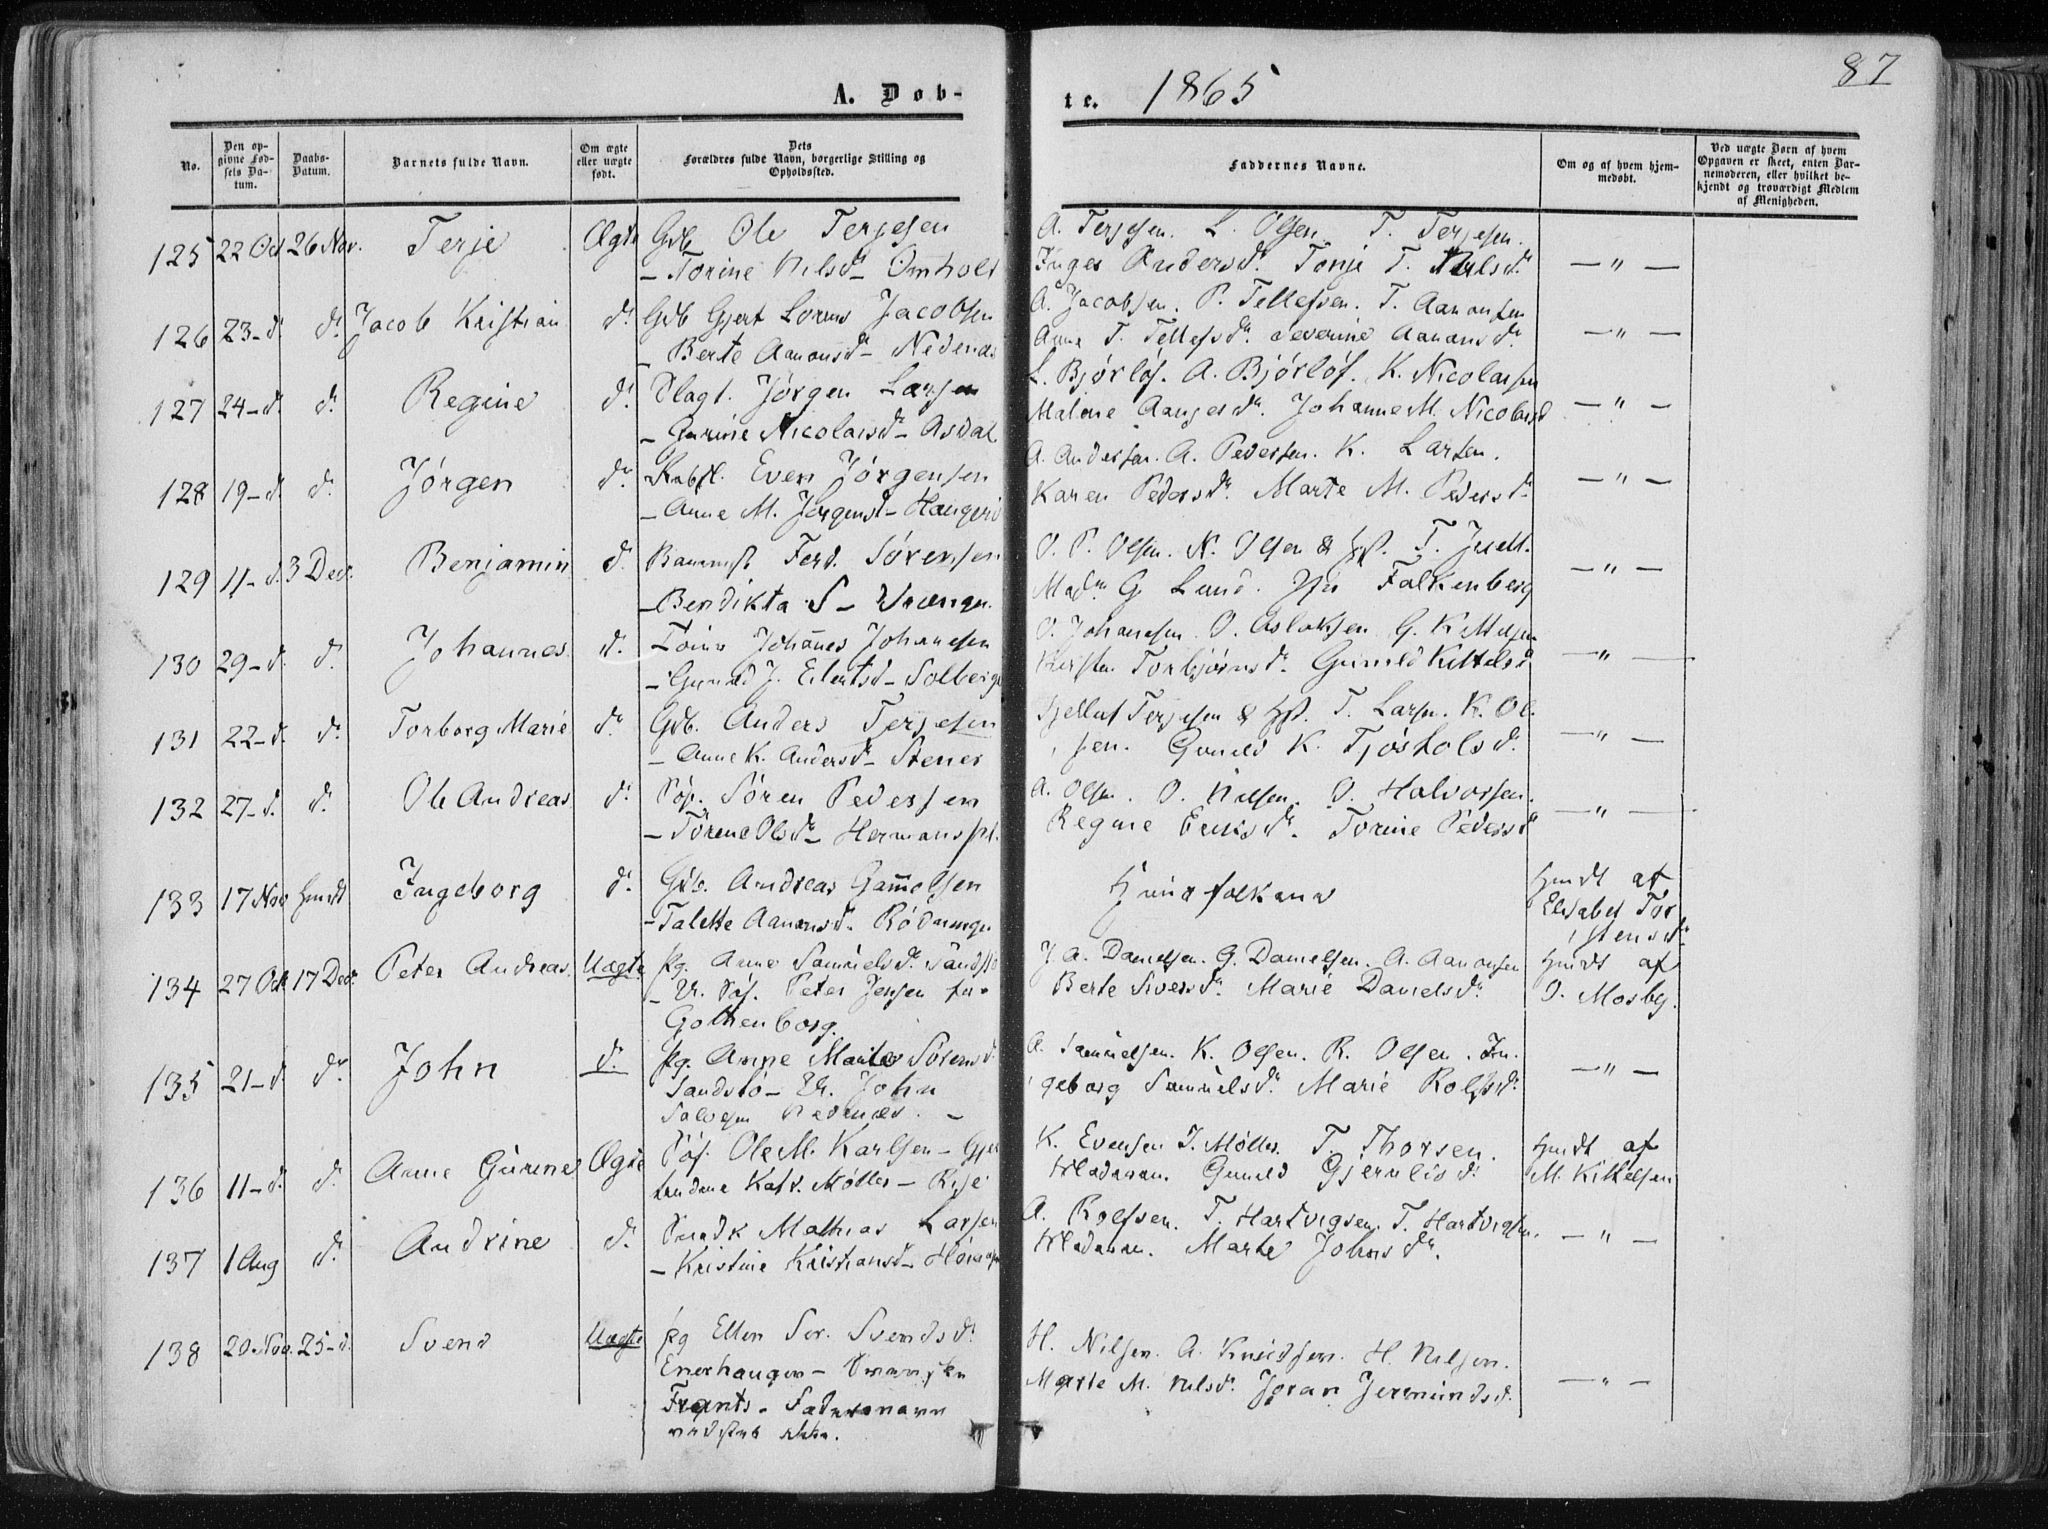 A. Døb-
te. 1865
87
No.
Den op-
givne Fød-
sels Da-
tum.
Daabs-
Datum.
Barnets fulde Navn.
Om ægte
eller uægte
født.
Dets
Forældres fulde Navn, borgerlige Stilling og
Opholdssted.
Faddernes Navne.
Om og af hvem hjem-
medøbt.
Ved uægte Børn af hvem
Opgaven er skeet, enten Bar-
nemoderen, eller hvilket be-
kjendt og troværdigt Medlem
af Menigheden.
125 22 Oct 26 Nov. Terje Ægte Gdb Ole Terjesen
– Torine Nilsdr – Omholt
A. Terjesen. L. Olsen. T. Terjesen.
Inger Andersdr. Tonje T. Nilsdr. — " —
126 23-d. do. Jacob Kristian do. Gdb Gjert Lorens Jacobsen
– Berte Aanonsd – Nedenæs
A. Jacobsen. P. Tellefsen. T. Aanonsen
Anne T. Tellefsdr. Severine Aanonsdr. — " —
127 24-d. do. Regine do. Slagt. Jørgen Larsen
– Gurine Nicolaisdr – Asdal
L. Bjørlöf. A. Bjórlóf. K. Nicolaisen
Malene Aangesdr. Johanne M. Nicolaisd — " —
128 19-d. do. Jørgen do. Even Jørgensen
– Anne M. Jørgensd –
A. Andersen. A. Pedersen. K. Larsen.
Karen Pedersdr. Marte M. Pedersdr — " —
129 11-d. 3 Decr. Benjamin do. Ferd. Sørensen
– Bendikta S –
O. P. Olsen. N. Olsen & Hst. T. Juell.
Madm G. Lund. Falkenberg — " —
130 29-d. do. Johannes do. Johannes Johannesen
– Gunild J. Eilertsd – Solberg
O. Johannesen O. Aslaksen G. Kittelsen
Kirsten Torbjørnsdr. Gunild Kittelsd — " —
131 22-d. do. Torborg Marie do. Gdb. Anders Terjesen
– Anne K. Andersdr – Stener
Tjellef Terjesen & Hst. T. Larsen. K. Ol-
sen. Gunild K. Tjøstolsdr. — " —
132 27-d. do. Ole Andreas do. Søf. Søren Pedersen
– Torene Olsdr –
A. Olsen. O. Nilsen. O. Halvorsen.
Regine Eriksdr. Torine Pedersd — " —
133 17 Nov Hmdt Ingeborg do. Gdb. Andreas Gammelsen
– Talette Aanonsdr.
Hmdt af
Elisabet Tor-
stensdr
134 27 Oct 17 Decr. Peter Andreas. Uægte Pg. Anne Samuelsdr. Sandstø
– U. Søf. Peter Jensen fra
Gothenborg.
J. A. Danielsen. G. Danielsen. A. Aanonsen
Berte Siversdr. Marie Danielsdr. Hmdt af
O. Mosby.
135 21-d. do. John do. Pg. Anne Marie Sørensd.
Sandstø – U. John
Salvesen Nedenæs. –
A. Samuelsen. K. Olsen. R. Olsen. In-
geborg Samuelsdr. Marie Rolfsdr. — " —
136 11-d. do. Anne Gurine Ægte Søf. Ole M. Karlsen – Gjer-
trudine Katr. Møller – Rise
K. Evensen J. Møller. T. Thorsen.
Moderen. Gunild Gjerulfsdr. Hmdt af
M. Kittelsen
137 1 Aug do. Andrine do. Smedk Mathias Larsen
– Kristine Kristiansd –
A. Rolfsen. T. Hartvigsen. T. Hartvigsen.
Moderen. Marte Johnsdr. — " —
138 20 Nov. 25-d. Svend Uægte Pg Ellen Ser. Svendsdr.
Enerhaugen –
Frants. Fadersnavn
vedstod ikke.
H. Nilsen. A. Knudsen. H. Nilsen.
Marte M. Nilsdr. Joran Jermundsd. — " —